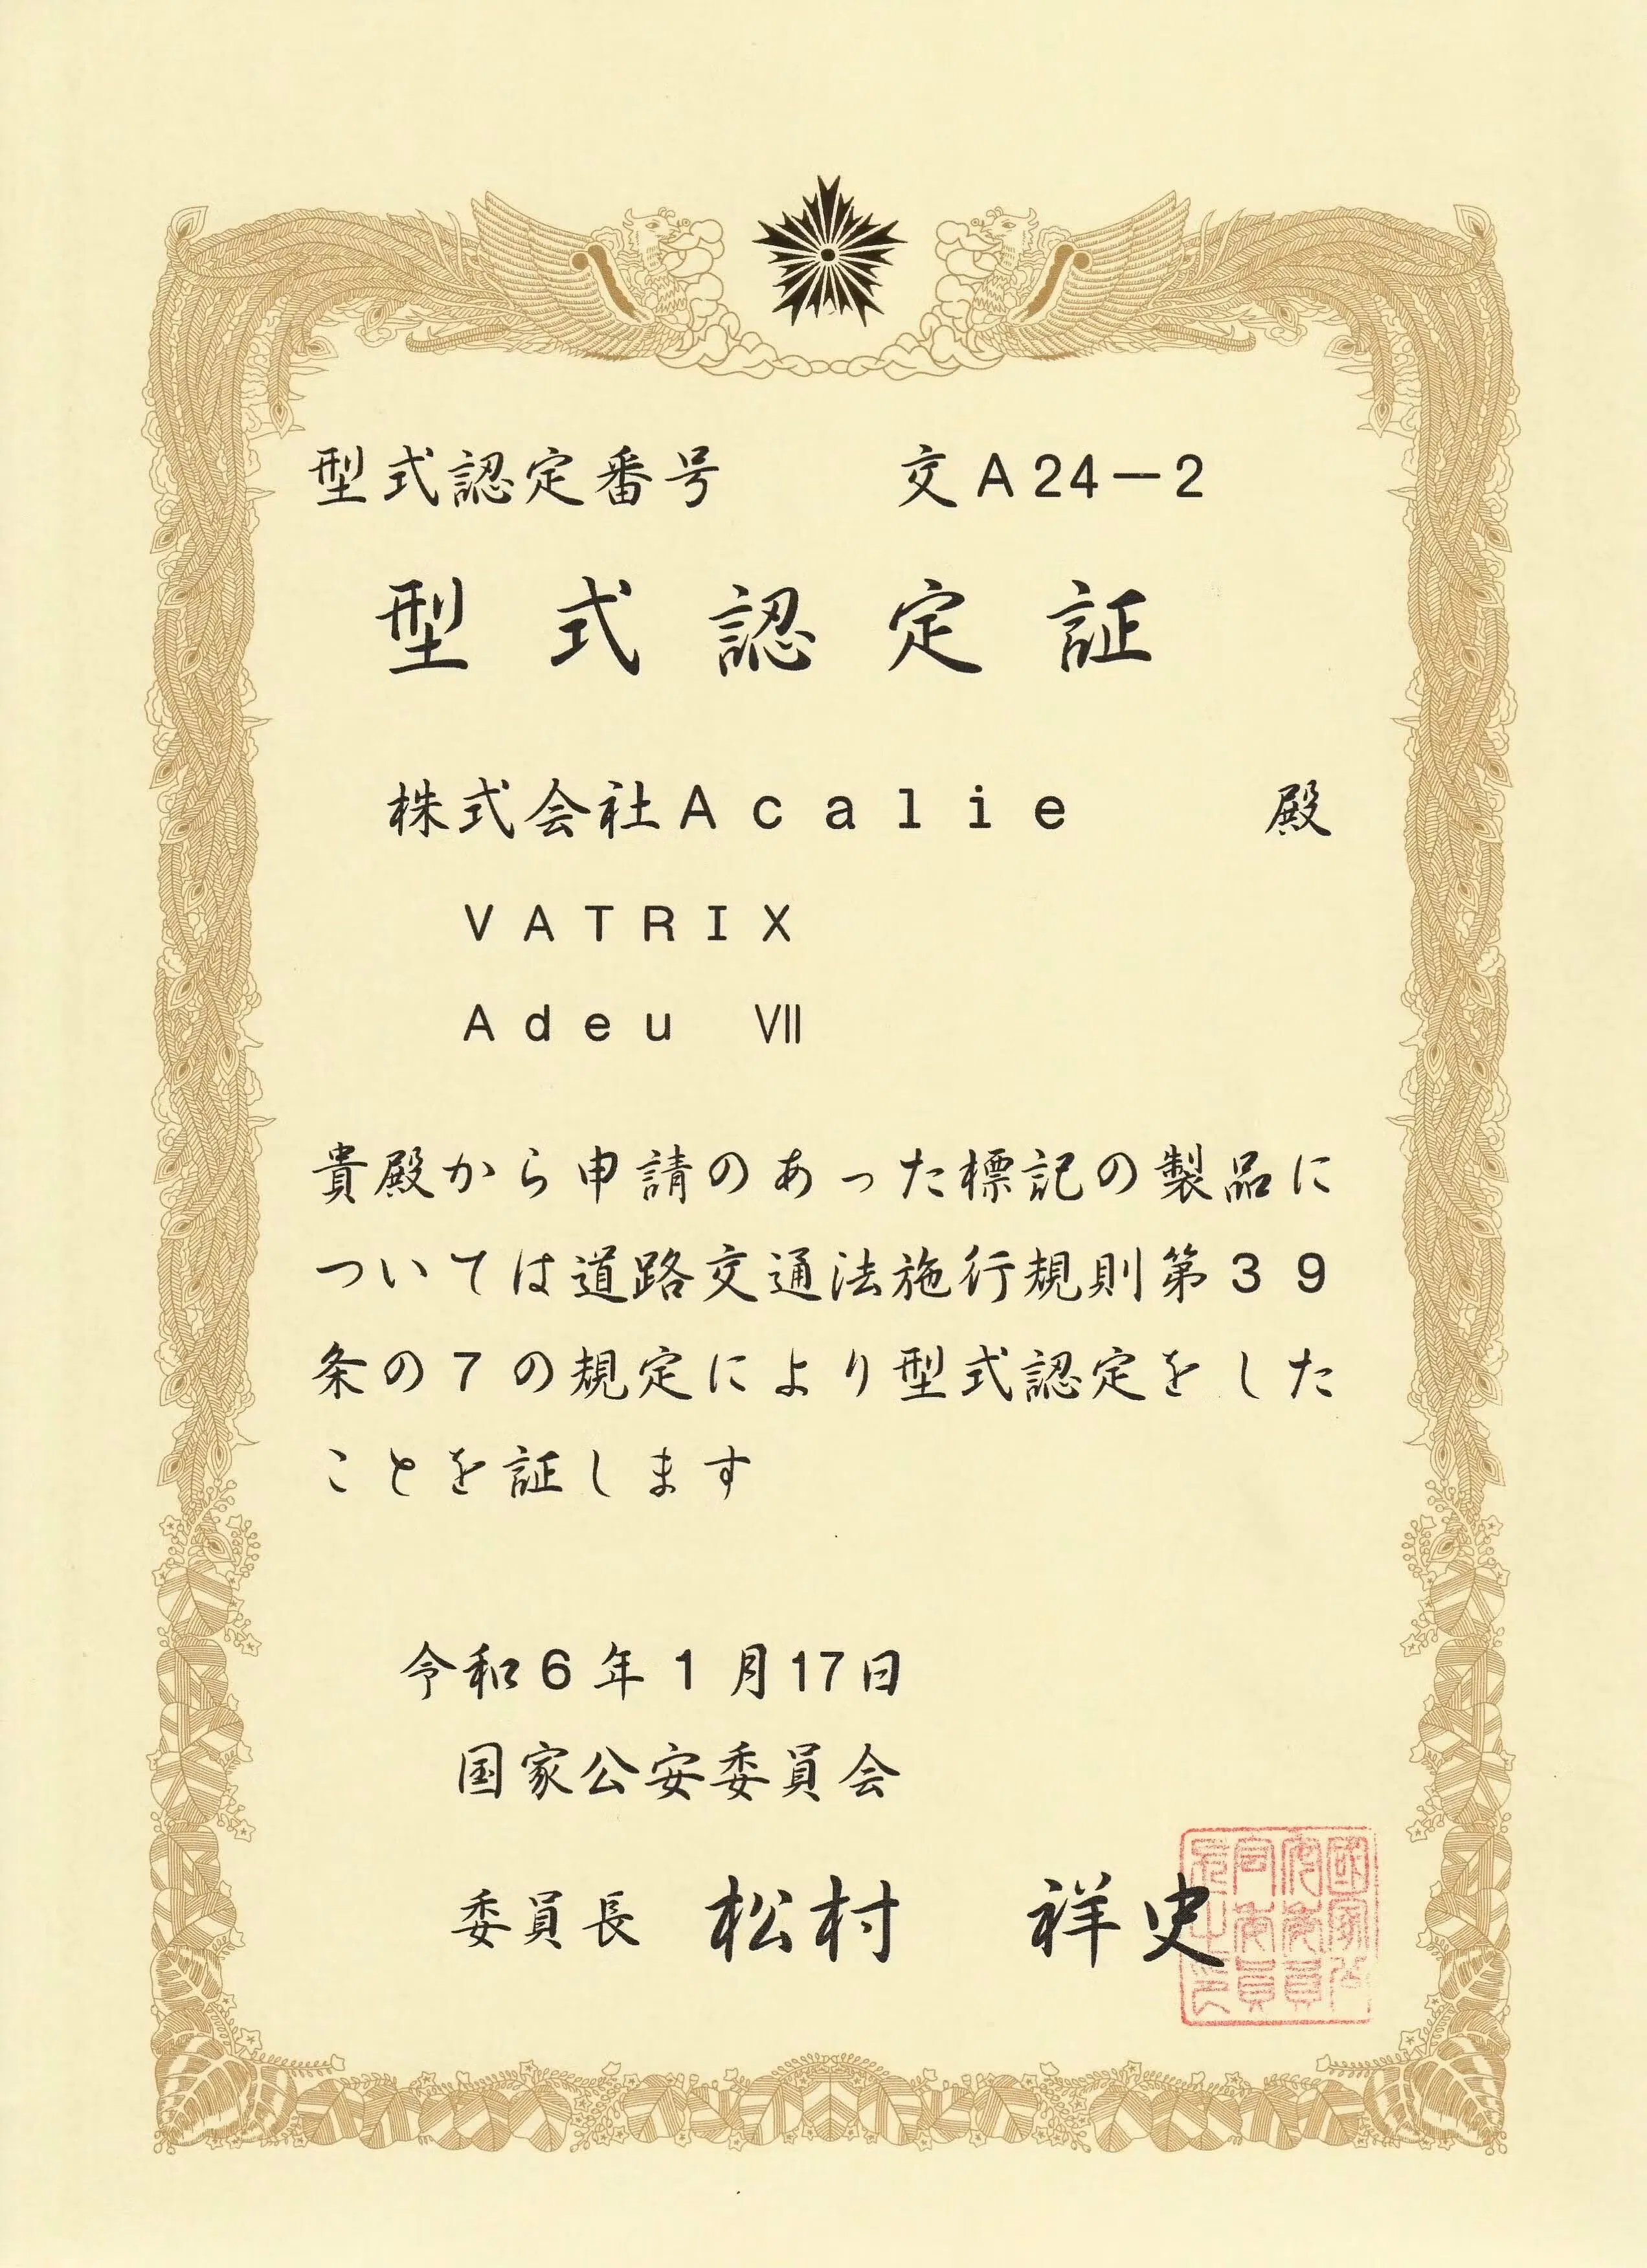 型式認定番号 交A24－2
型式認定証
株式会社Acalie 殿
VATRIX
Adeu Ⅶ
貴殿から申請のあった標記の製品に
ついては道路交通法施行規則第39
条の7の規定により型式認定をした
ことを証します
令和6年1月17日
国家公安委員会
委員長 松村 祥史